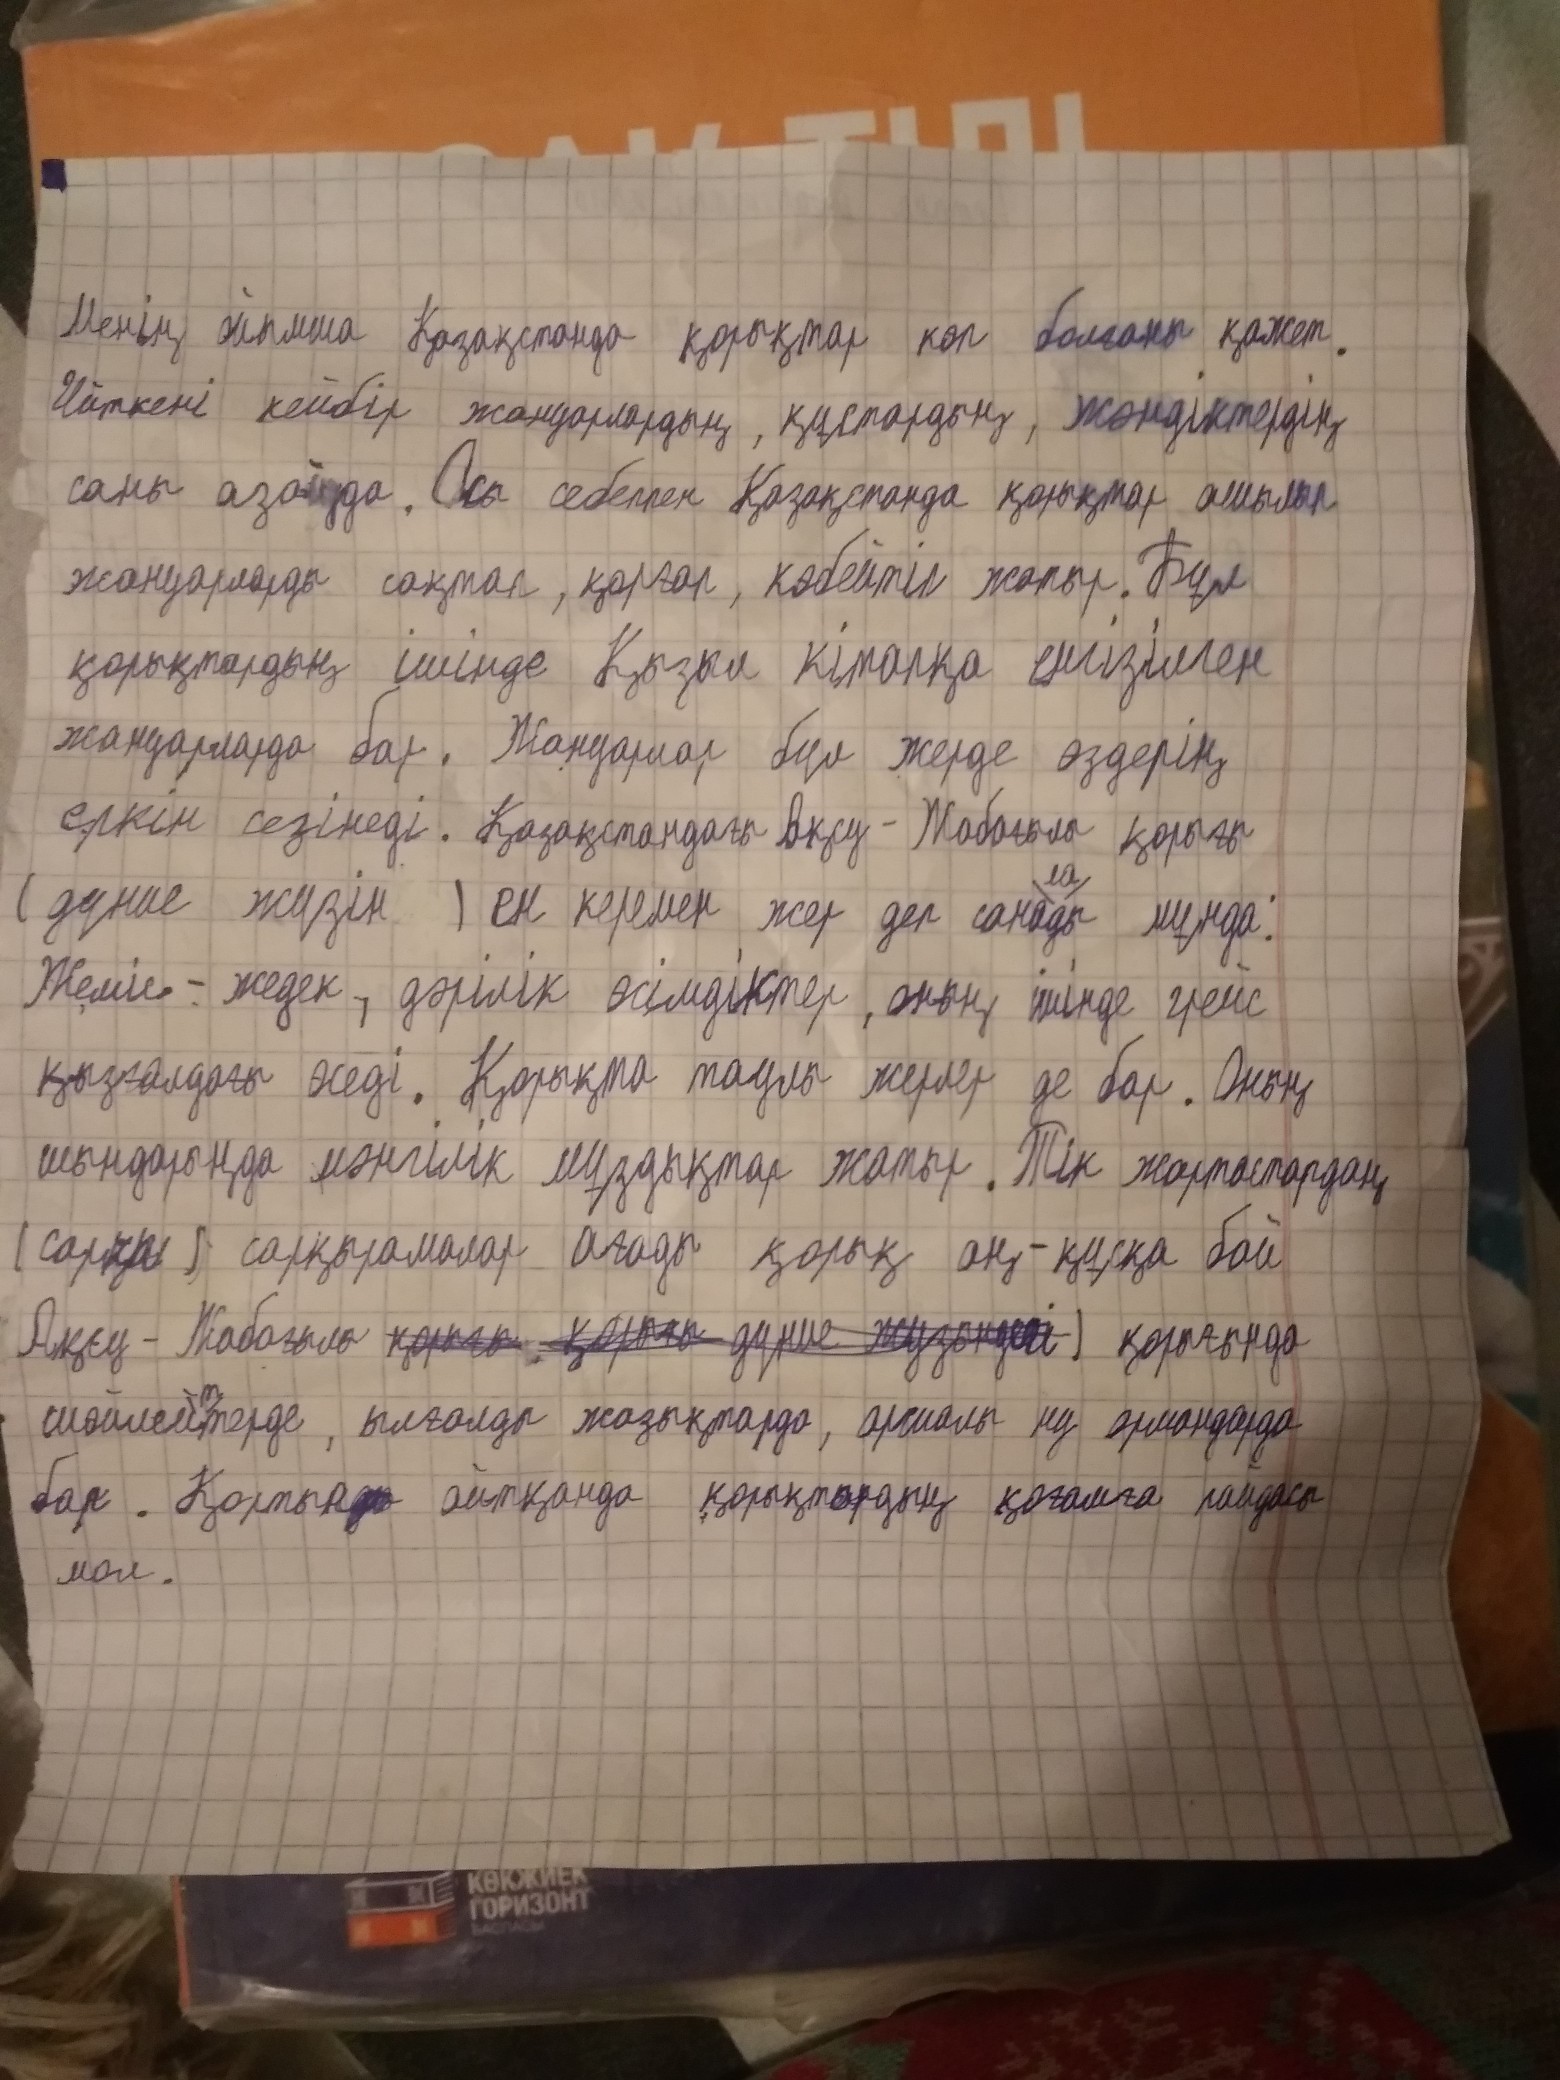 ЗАҚ ТІЛІ
Менің ойымша Қазақстанда қорықтар көп болғаны қажет.
Өйткені кейбір жануарлардың, құстардың, жәндіктердің
саны азайуда. Осы себеппен Қазақстанда қорықтар ашылып
жануарларды сақтап, қорғап, көбейтіп жатыр. Бұл
қорықтардың ішінде Қызыл кітапқа енгізілген
жануарларда бар. Жануарлар бұл жерде өздерің
еркін сезінеді. Қазақстандағы Ақсу - Жабағылы қорығы
(дүние жүзін) ен керемен жер деп саналады мұнда:
Жеміс - жедек, дәрілік өсімдіктер, оның ішінде грейс
қызғалдағы өседі. Қорықта таулы жерлер де бар. Оның
шындарыңда мәнгілік мұздықтар жатыр. Тік жартастардаң
(сарқы) сарқырамалар ағады қорық аң-құсқа бай
Ақсу - Жабағылы қорығы қорығы дүние жузындегі) қорығында
шөйлейттерде, ылғалды жазықтарда, аршалы ну ормандарда
бар. Қортынды айтқанда қорықтардың қоғамға пайдасы
мол.
КӨКЖИЕК
ГОРИЗОНТ
БАСПАСЫ